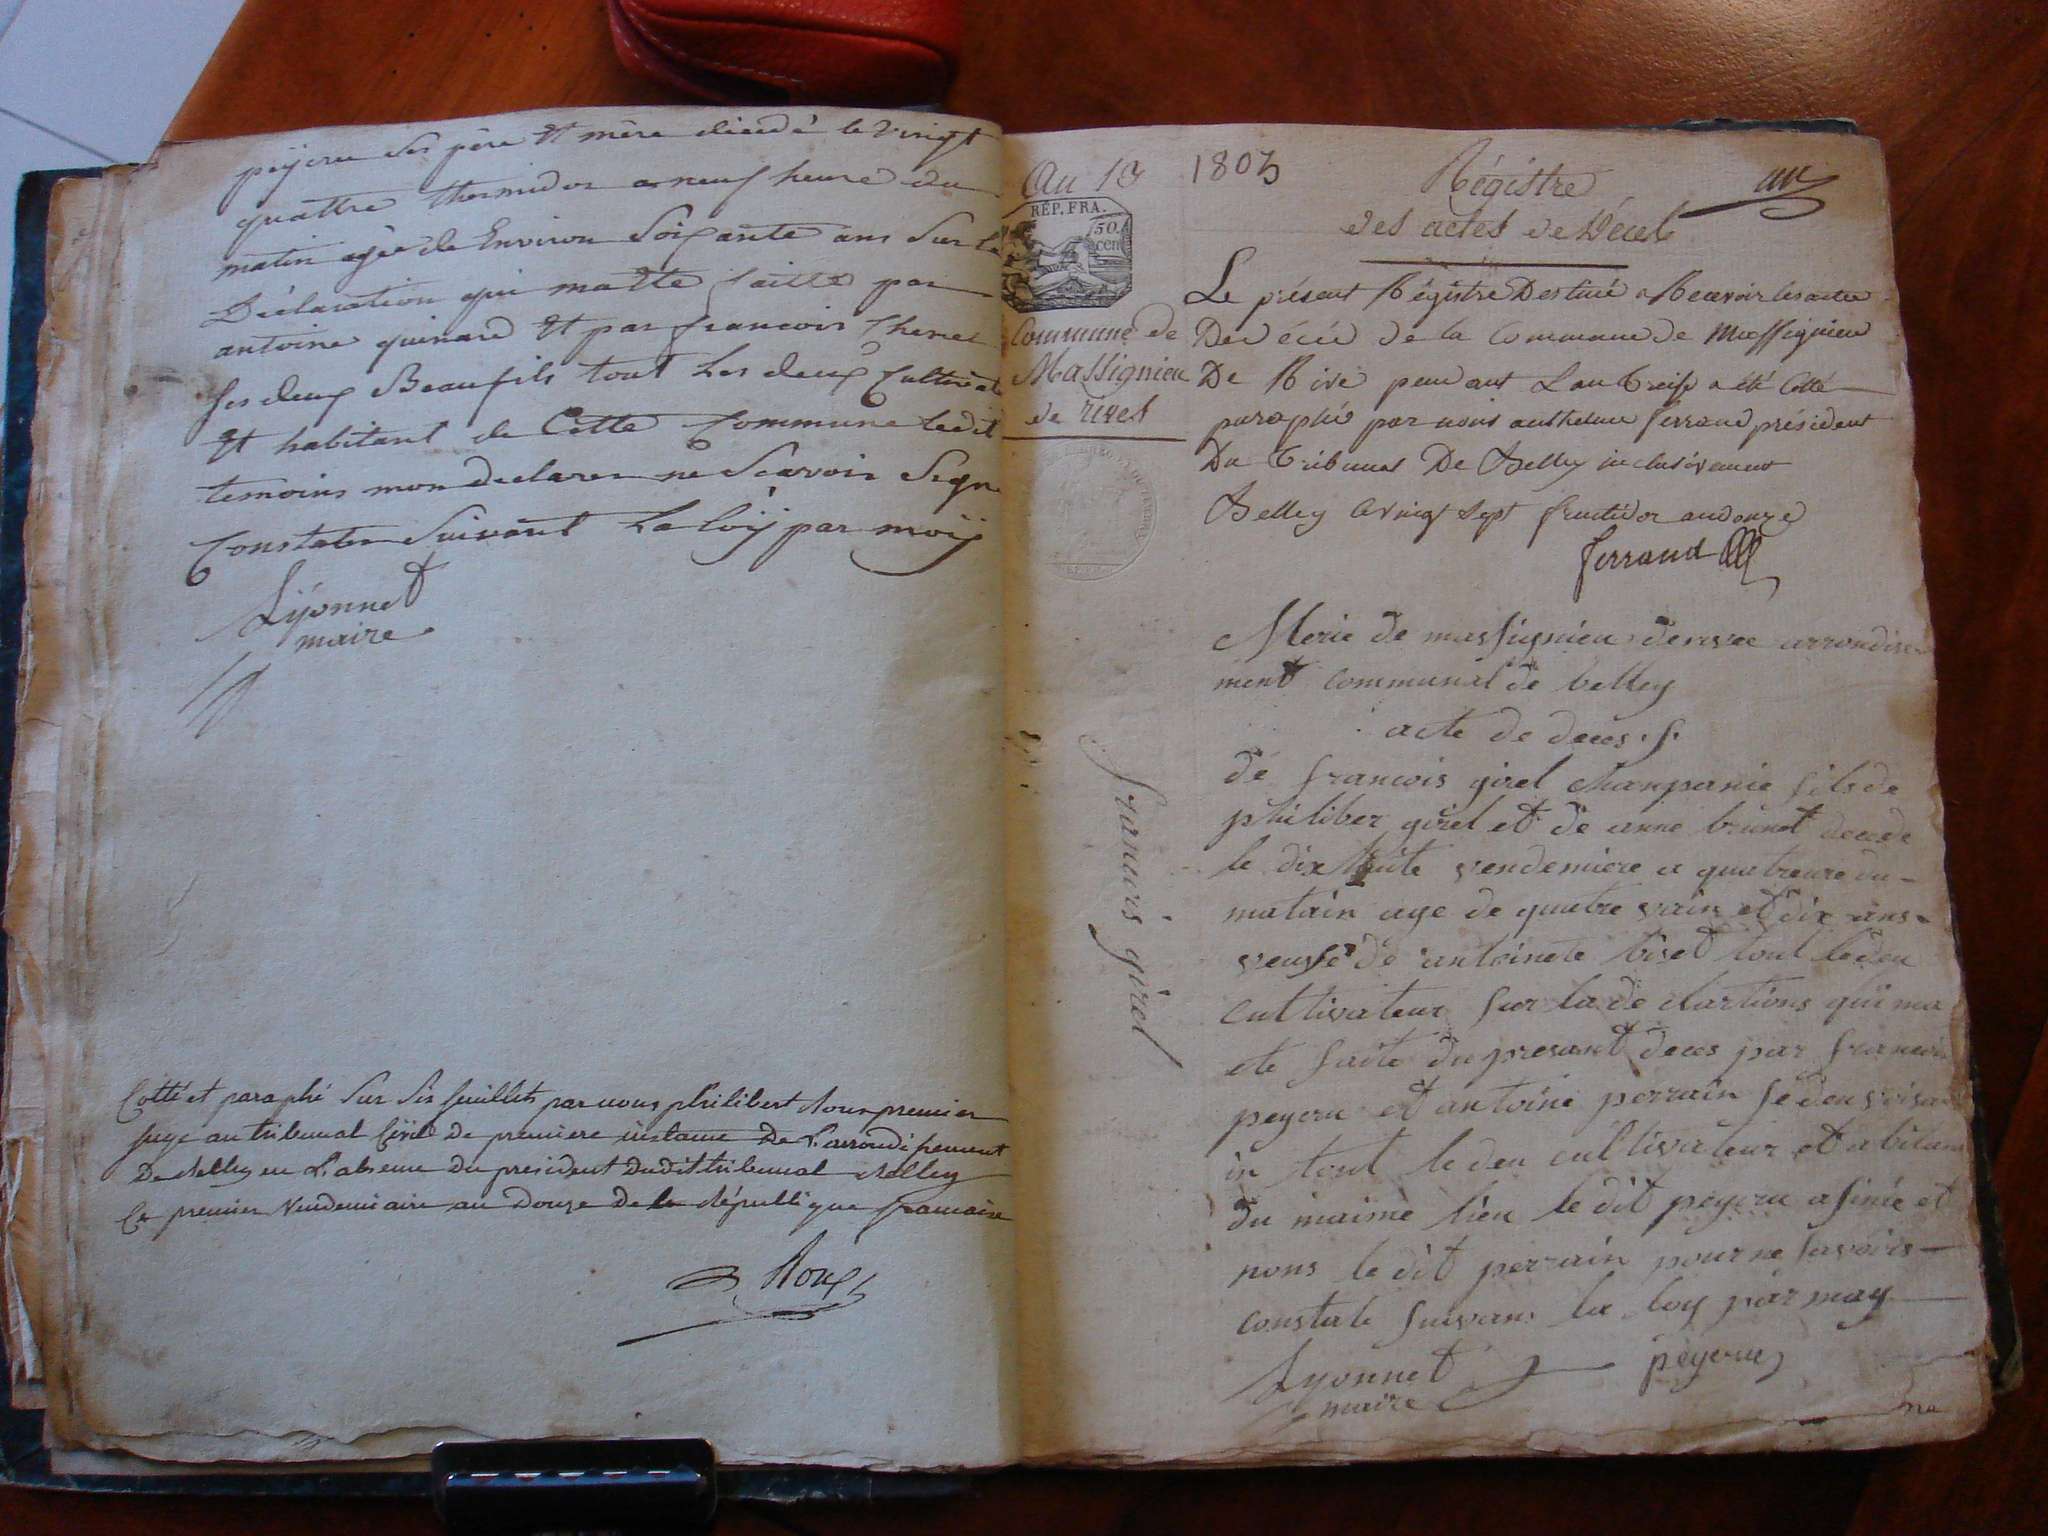 peÿcru ses père et mère décédé le vingt
quattre thermidor a neuf heure du
matin agé de Environ Soixante ans Sur la
Déclaration qui matté faitte par
antoine guinard et par françois Chenet
ses deux Beaufils tout Les deux Cultivat
et habitant de Cette Commune ledit
temoins mon declarer ne Scavoir Signe
Constater Suivant La Loÿ par moÿ
Lÿonnet
maire
Cotté et paraphé Sur Six feuillets par nous philibert Roux premier
Juge au tribunal Civil De premiere instance De L'arrondissement
De Belley en L'absence Du president Dudit tribunal Belley
Ce premier Vendemiaire an Douze De la République francaise
Roux
An 13
1803
RÉP. FRA.
50.
cen
Commune de
Massignieu
de rives
Régistre
des actes de Décés
Le présent Régistre Destiné a Recevoir les actes
De décés de la Commune de Massignieu
De Rive pendant L'an treise a été Cotté
paraphé par nous anthelme ferrand président
Du tribunal De Belley inclusivement
Belley le vingt sept fructidor an douze
ferrand
Merie de massignieu derivee arrondise
ment communal de belley
acte de deces
françois girel
de françois girel champanie fils de
philiber girel et de anne brunet decede
le dix huite vendemiere a quatreure du
matain age de quatre vain et dix ans
veuffe de antoinete biset tout le deu
cultivateur sur la de clartions qui ma
ete faite du presant deces par francois
peycru et antoine perrain se deu voisa
in tout le deu cultivateur et abitans
du maime lieu le dit peycru a sinié et
nons le dit perrain pour ne savoire
constate suivans la loy par moy
Lyonnet
peycru
maire